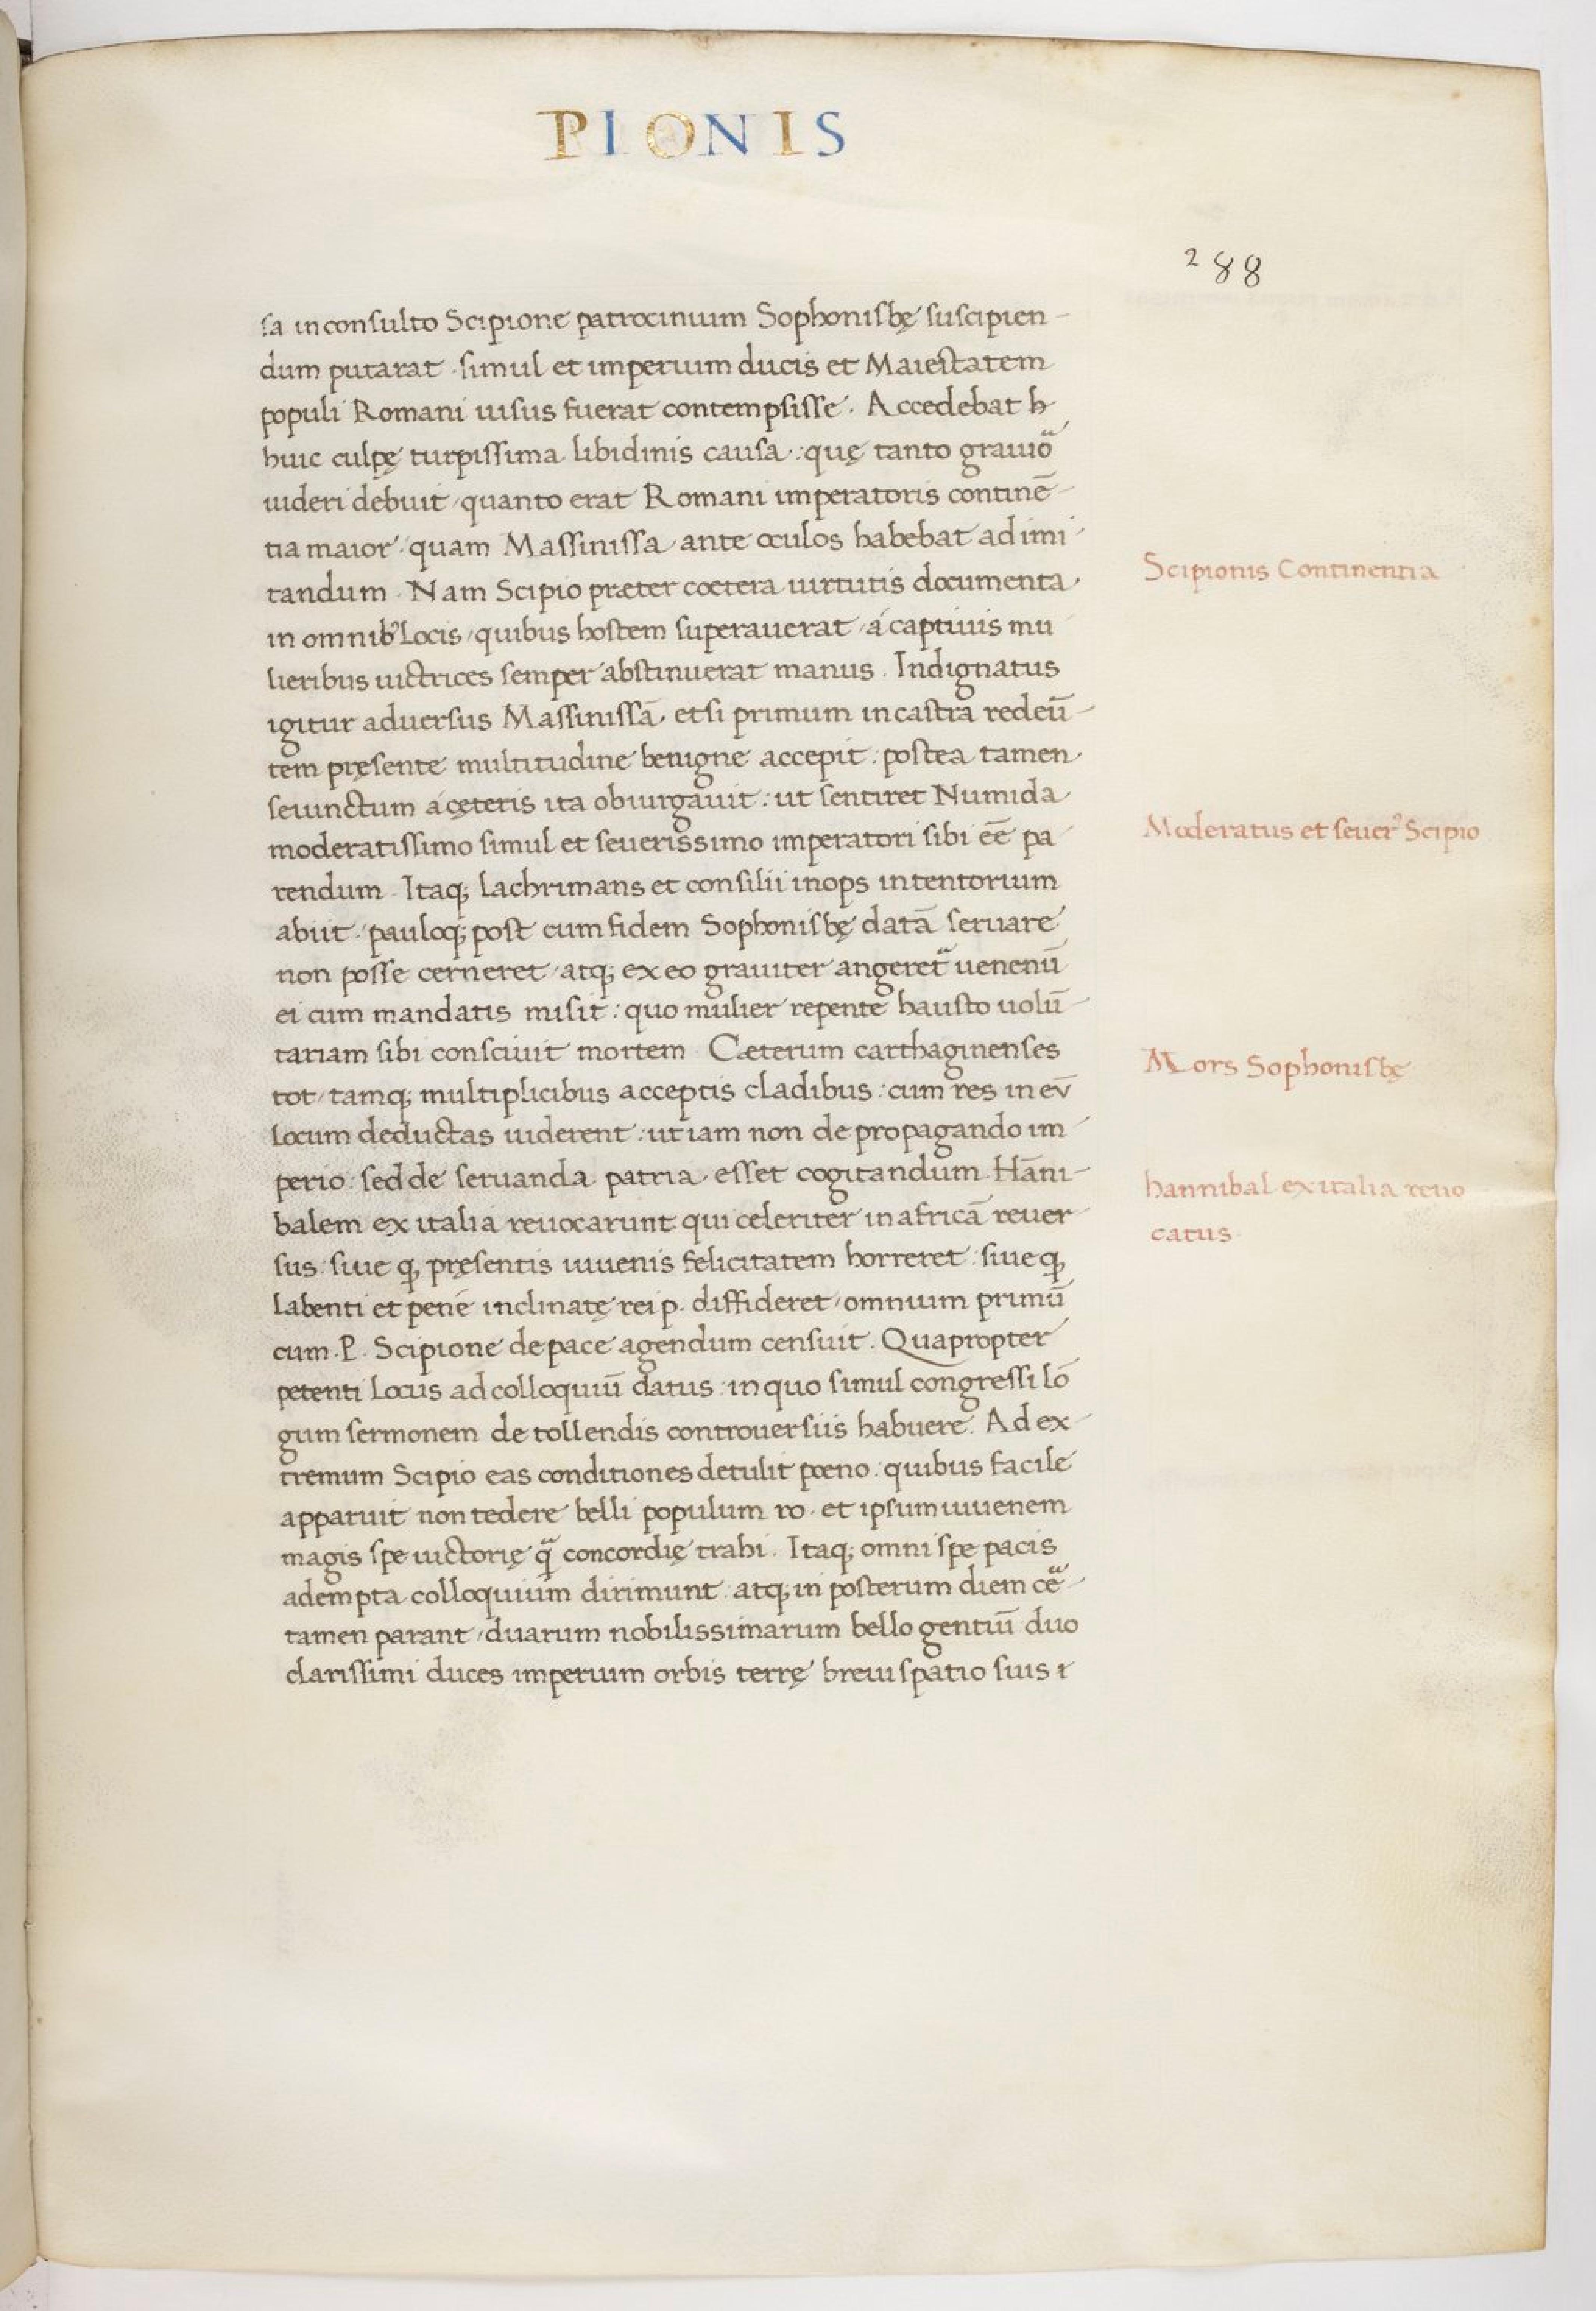 PIONIS
288
sa inconsulto Scipione patrocinium Sophonisbę suscipien-
dum putarat. simul et imperium ducis et Maiestatem
populi Romani uisus fuerat contempsisse. Accedebat h
huic culpę turpissima libidinis causa: quę tanto grauiō
uideri debuit, quanto erat Romani imperatoris continē-
tia maior, quam Massinissa ante oculos habebat ad imi
tandum. Nam Scipio præter coetera uirtutis documenta
in omnibꝰ locis, quibus hostem superauerat, á captiuis mu
lieribus uictrices semper abstinuerat manus. Indignatus
igitur aduersus Massinissā, etsi primum in castra redeū-
tem pręsente multitudine benigne accepit: postea tamen
seiunctum á cęteris ita obiurgauit: ut sentiret Numida
moderatissimo simul et seuerissimo imperatori sibi eē pa
rendum. Itaq; lachrimans et consilii inops in tentorium
abiit. pauloq; post cum fidem Sophonisbę datā seruare
non posse cerneret, atq; ex eo grauiter angeret᷑ uenenū
ei cum mandatis misit: quo mulier repente hausto uolū-
tariam sibi consciuit mortem. Cæterum carthaginenses
tot, tamq; multiplicibus acceptis cladibus: cum res in eū
locum deductas uiderent: ut iam non de propagando im
perio: sed de seruanda patria esset cogitandum. Hāni-
balem ex italia reuocarunt qui celeriter in africā reuer
sus: siue q; pręsentis iuuenis felicitatem horreret: siue q;
labenti et pené inclinatę rei p. diffideret, omnium primū
cum .P. Scipione de pace agendum censuit. Quapropter
petenti locus ad colloquiū datus: in quo simul congressi lō
gum sermonem de tollendis controuersiis habuere. Ad ex-
tremum Scipio eas conditiones detulit poeno: quibus facile
apparuit non tedere belli populum ro. et ipsum iuuenem
magis spe uictorię q̄ concordię trahi. Itaq; omni spe pacis
adempta colloquium dirimunt: atq; in posterum diem cē
tamen parant, duarum nobilissimarum bello gentiū duo
clarissimi duces imperium orbis terrę breui spatio suis
Scipionis Continentia
Moderatus et seuerꝰ Scipio
Mors Sophonisbę
hannibal ex italia reuo
catus